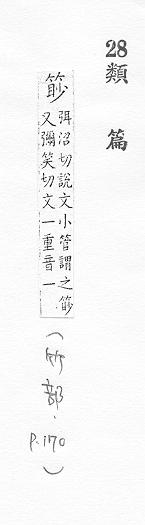 28類篇
䈃
弭沼切說文小管謂之䈃
又彌笑切文一重音一
(竹部.P.170)